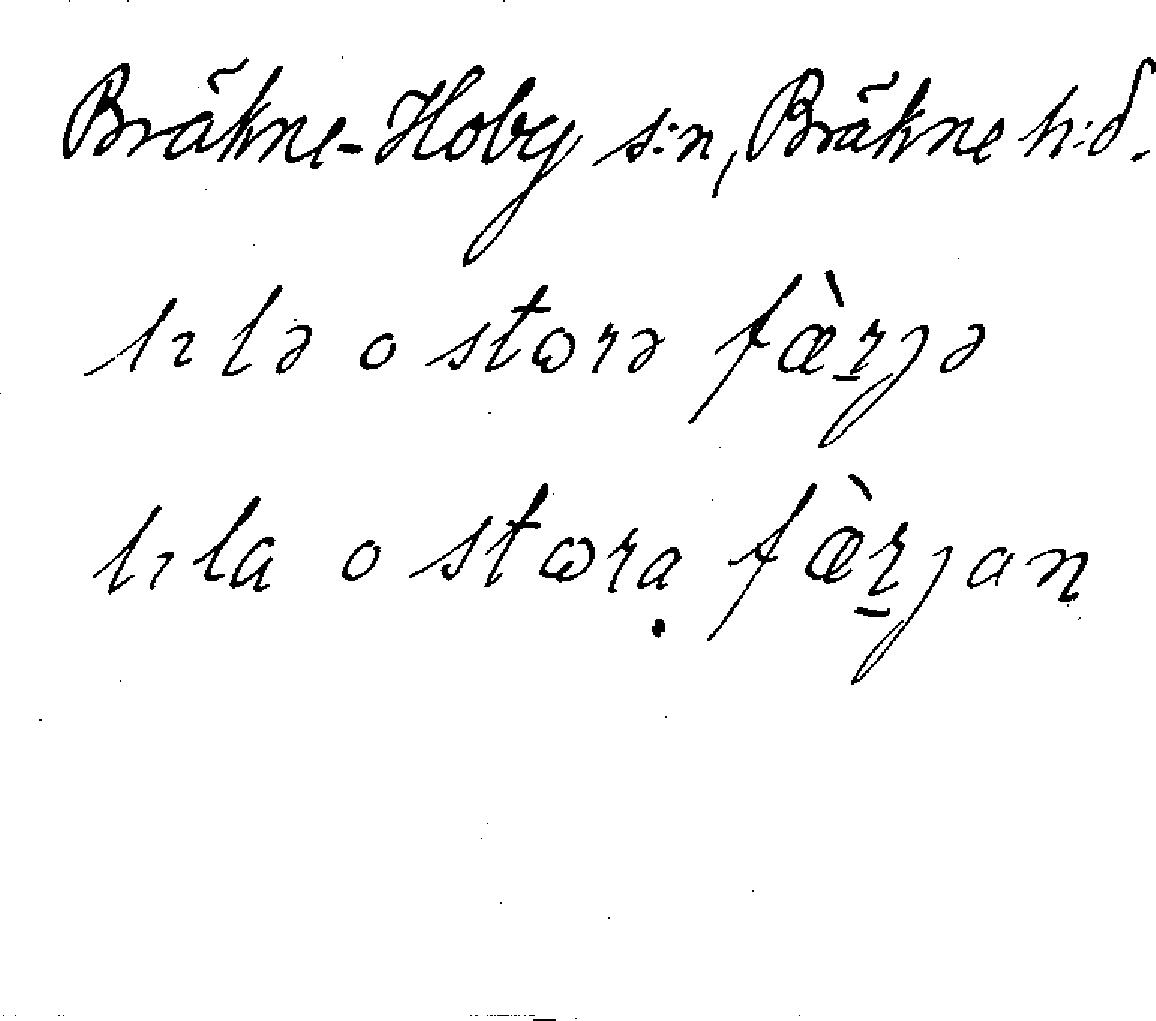 Bräkne-Hoby s:n, Bräkne h:d.
lılə o stωrə fæ̀r̠jə
lıla o stωrạ fæ̀r̠jan